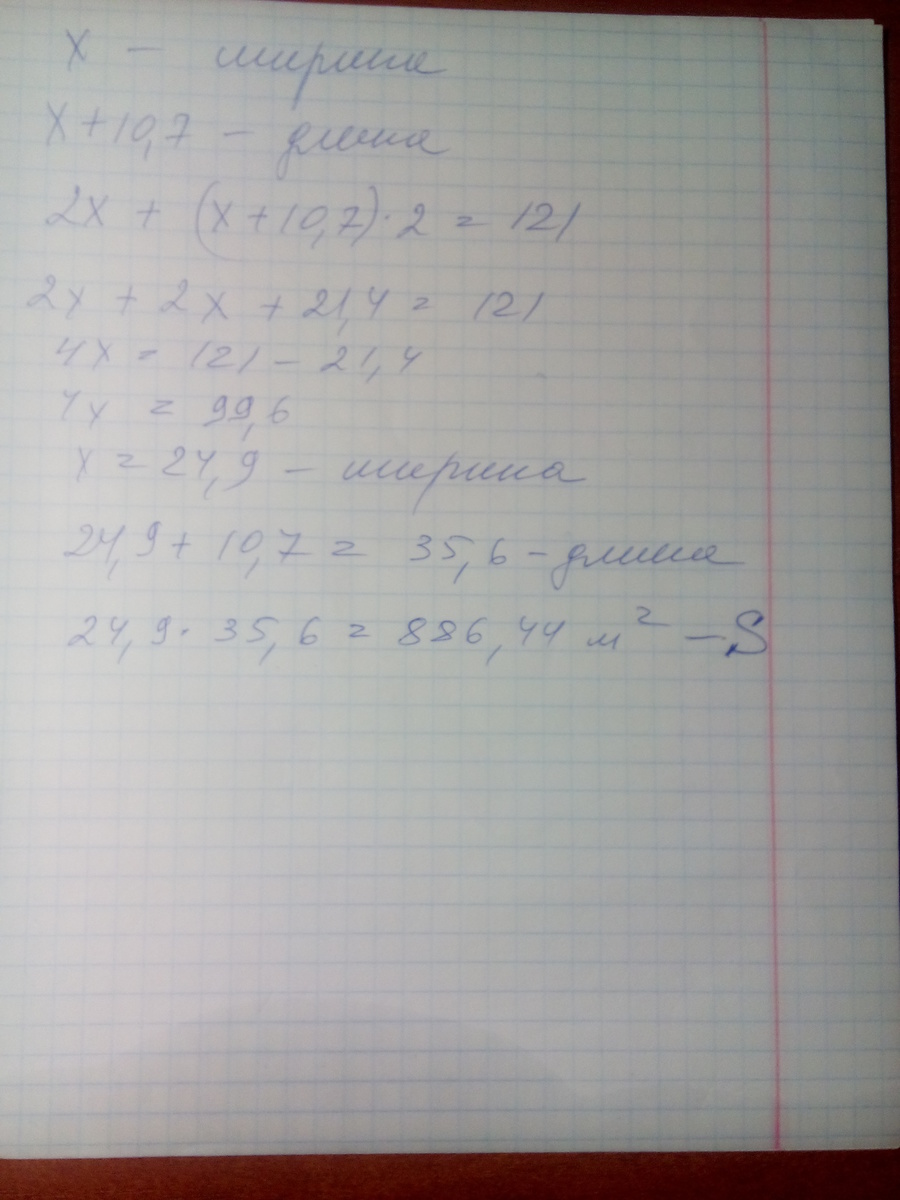 x – ширина
x + 10,7 – длина
2x + (x + 10,7) · 2 = 121
2x + 2x + 21,4 = 121
4x = 121 – 21,4
4x = 99,6
x = 24,9 – ширина
24,9 + 10,7 = 35,6 – длина
24,9 · 35,6 = 886,44 м² – S